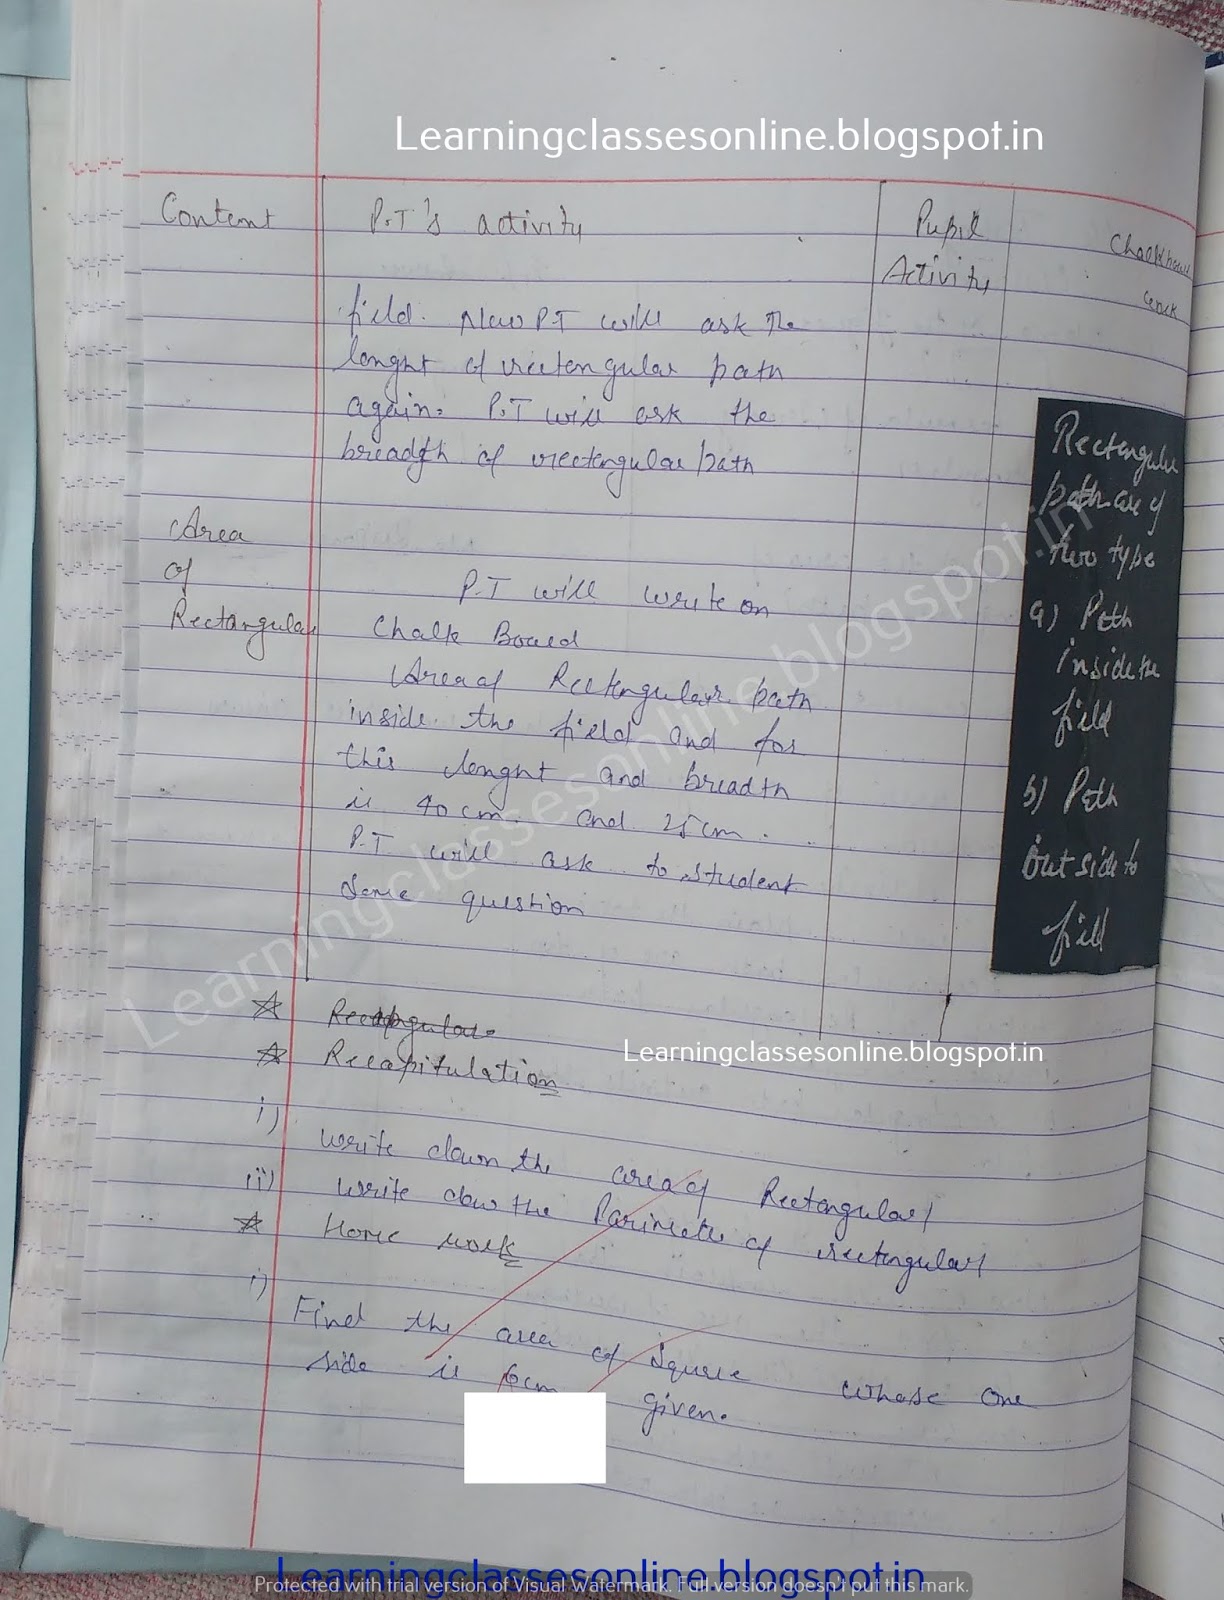 Learningclassesonline.blogspot.in
Content
P.T's activity
Pupil
Activity
field. Now PT will ask the
lenght of rectengular path
again. P.T will ask the
breadth of rectengular path
Area
of
Rectangular
P.T will write on
Chalk Board
Area of Rectengular path
inside the field and for
this lenght and breadth
is 40 cm. and 25 cm.
P.T will ask to student
some question
Rectengular
path are of
two type
a) Path
inside the
field
b) Path
outside to
field
Learningclassesonline.blogspot.in
Learningclassesonline.blogspot.in
☆ Recapitulation
i) write down the area of Rectengular/
ii) write dow the Parimeter of rectengular/
☆ Home work
i) Find the area of square whose one
side is 6cm given.
Learningclassesonline.blogspot.in
Protected with trial version of Visual Watermark. Full version doesn't put this mark.